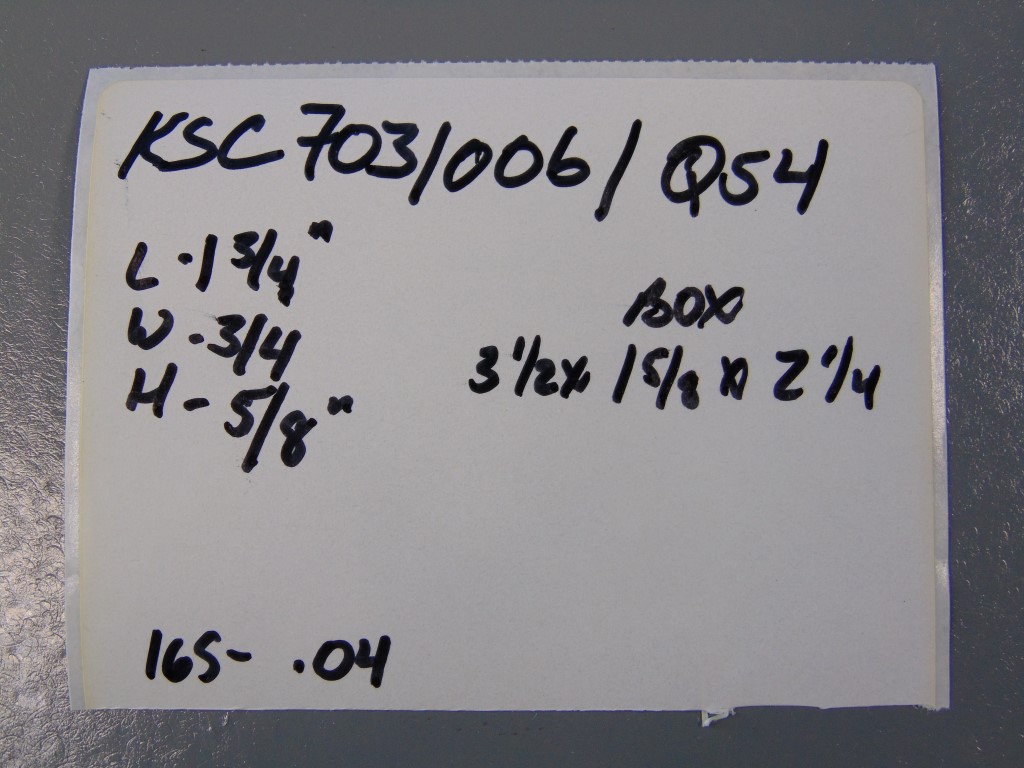 KSC703/006/Q54
L-1 3/4"
W-3/4
H-5/8"
BOX
3 1/2 x 1 5/8 x 2 1/4
16S- .04